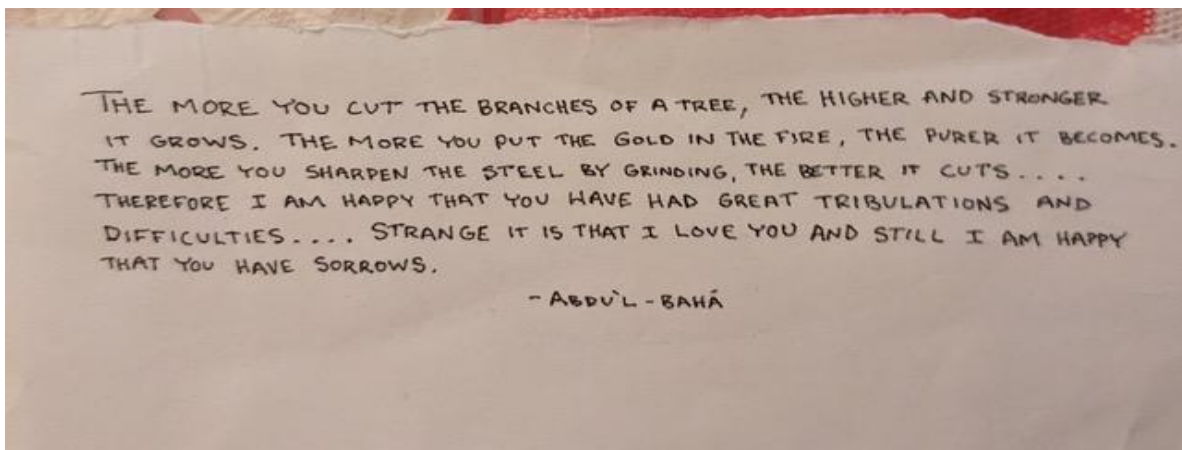 THE MORE YOU CUT THE BRANCHES OF A TREE, THE HIGHER AND STRONGER
IT GROWS. THE MORE YOU PUT THE GOLD IN THE FIRE, THE PURER IT BECOMES.
THE MORE YOU SHARPEN THE STEEL BY GRINDING, THE BETTER IT CUTS....
THEREFORE I AM HAPPY THAT YOU HAVE HAD GREAT TRIBULATIONS AND
DIFFICULTIES.... STRANGE IT IS THAT I LOVE YOU AND STILL I AM HAPPY
THAT YOU HAVE SORROWS.
-ABDU'L-BAHÁ